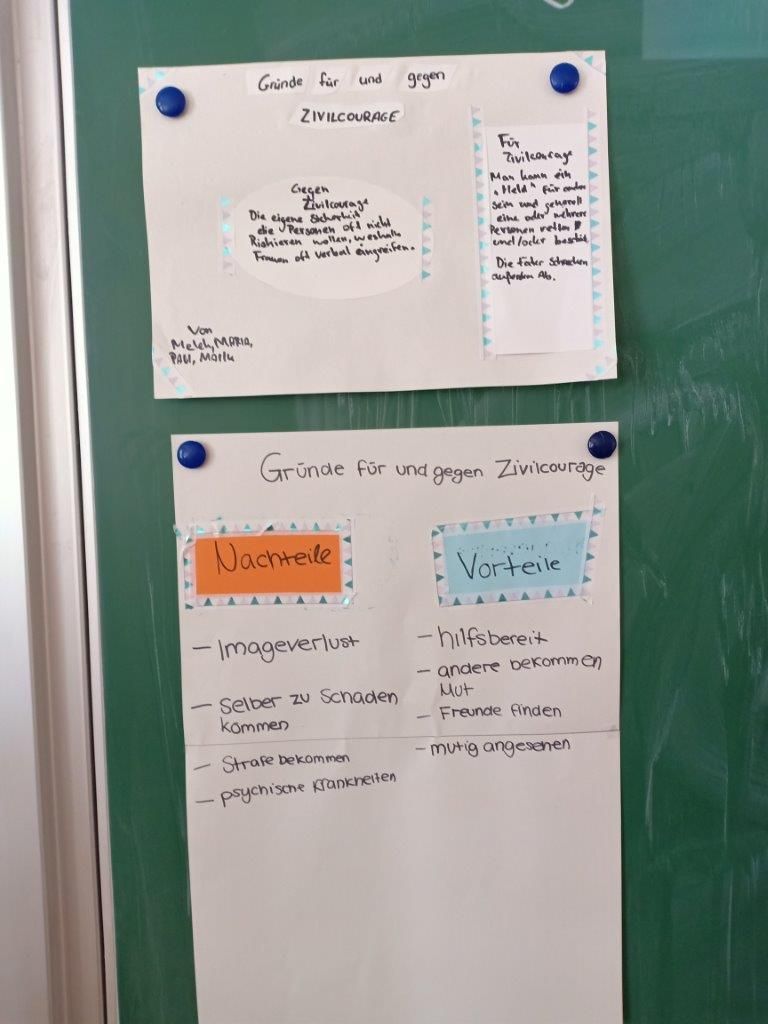 Gründe für und gegen
ZIVILCOURAGE
Gegen
Zivilcourage
Die eigene Sicherheit
die Personen oft nicht
Riskieren wollen, weshalb
Frauen oft verbal eingreifen.
Für
Zivilcourage
Man kann ein
"Held" für andere
sein und generell
eine oder mehrere
Personen retten
und/oder
Die
Ab.
Von
MARIA,
PAUL,
Gründe für und gegen Zivilcourage
Nachteile
- Imageverlust
- Selber zu Schaden
kommen
- Strafe bekommen
- psychische Krankheiten
Vorteile
- hilfsbereit
- andere bekommen
Mut
- Freunde finden
- mutig angesehen